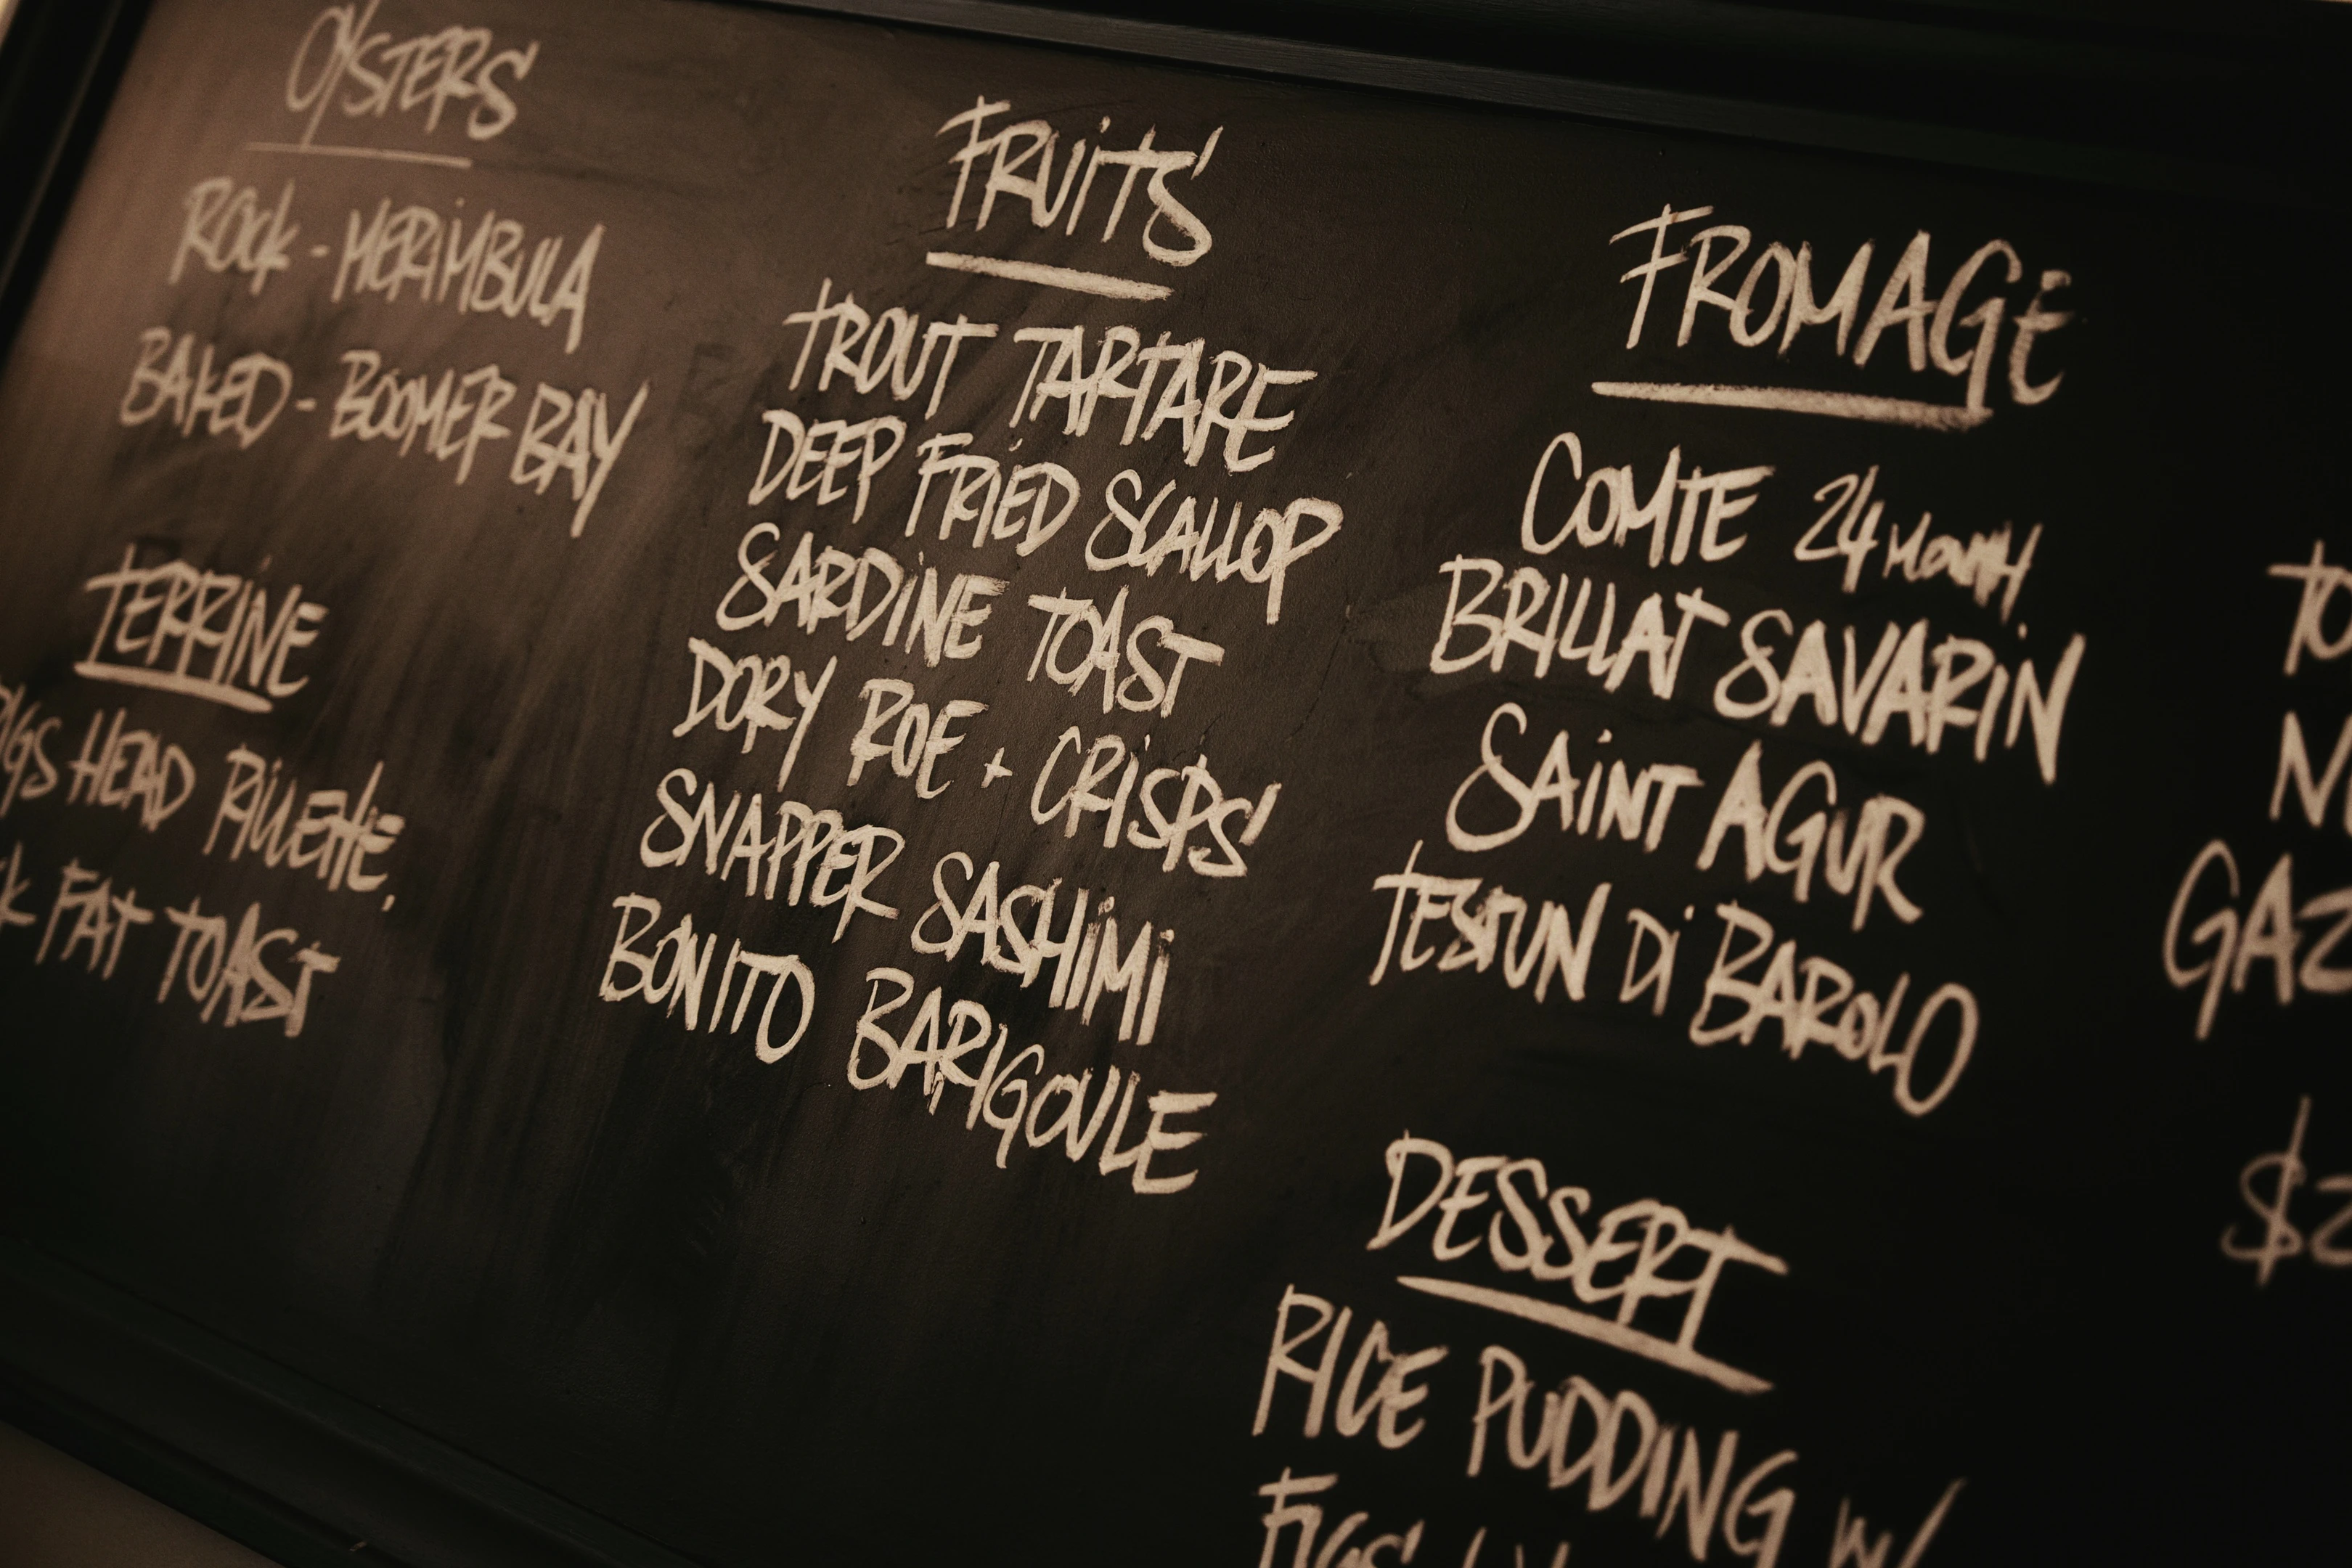 OYSTERS
ROCK - MERIMBULA
BAKED - BOOMER BAY
TERRINE
PIGS HEAD RILLETTE,
FAT TOAST
FRUITS
TROUT TARTARE
DEEP FRIED SCALLOP
SARDINE TOAST
DORY ROE + CRISPS
SNAPPER SASHIMI
BONITO BARIGOULE
FROMAGE
COMTE 24 MONTH
BRILLAT SAVARIN
SAINT AGUR
TESTUN Di BAROLO
DESSERT
RICE PUDDING W/
FIGS